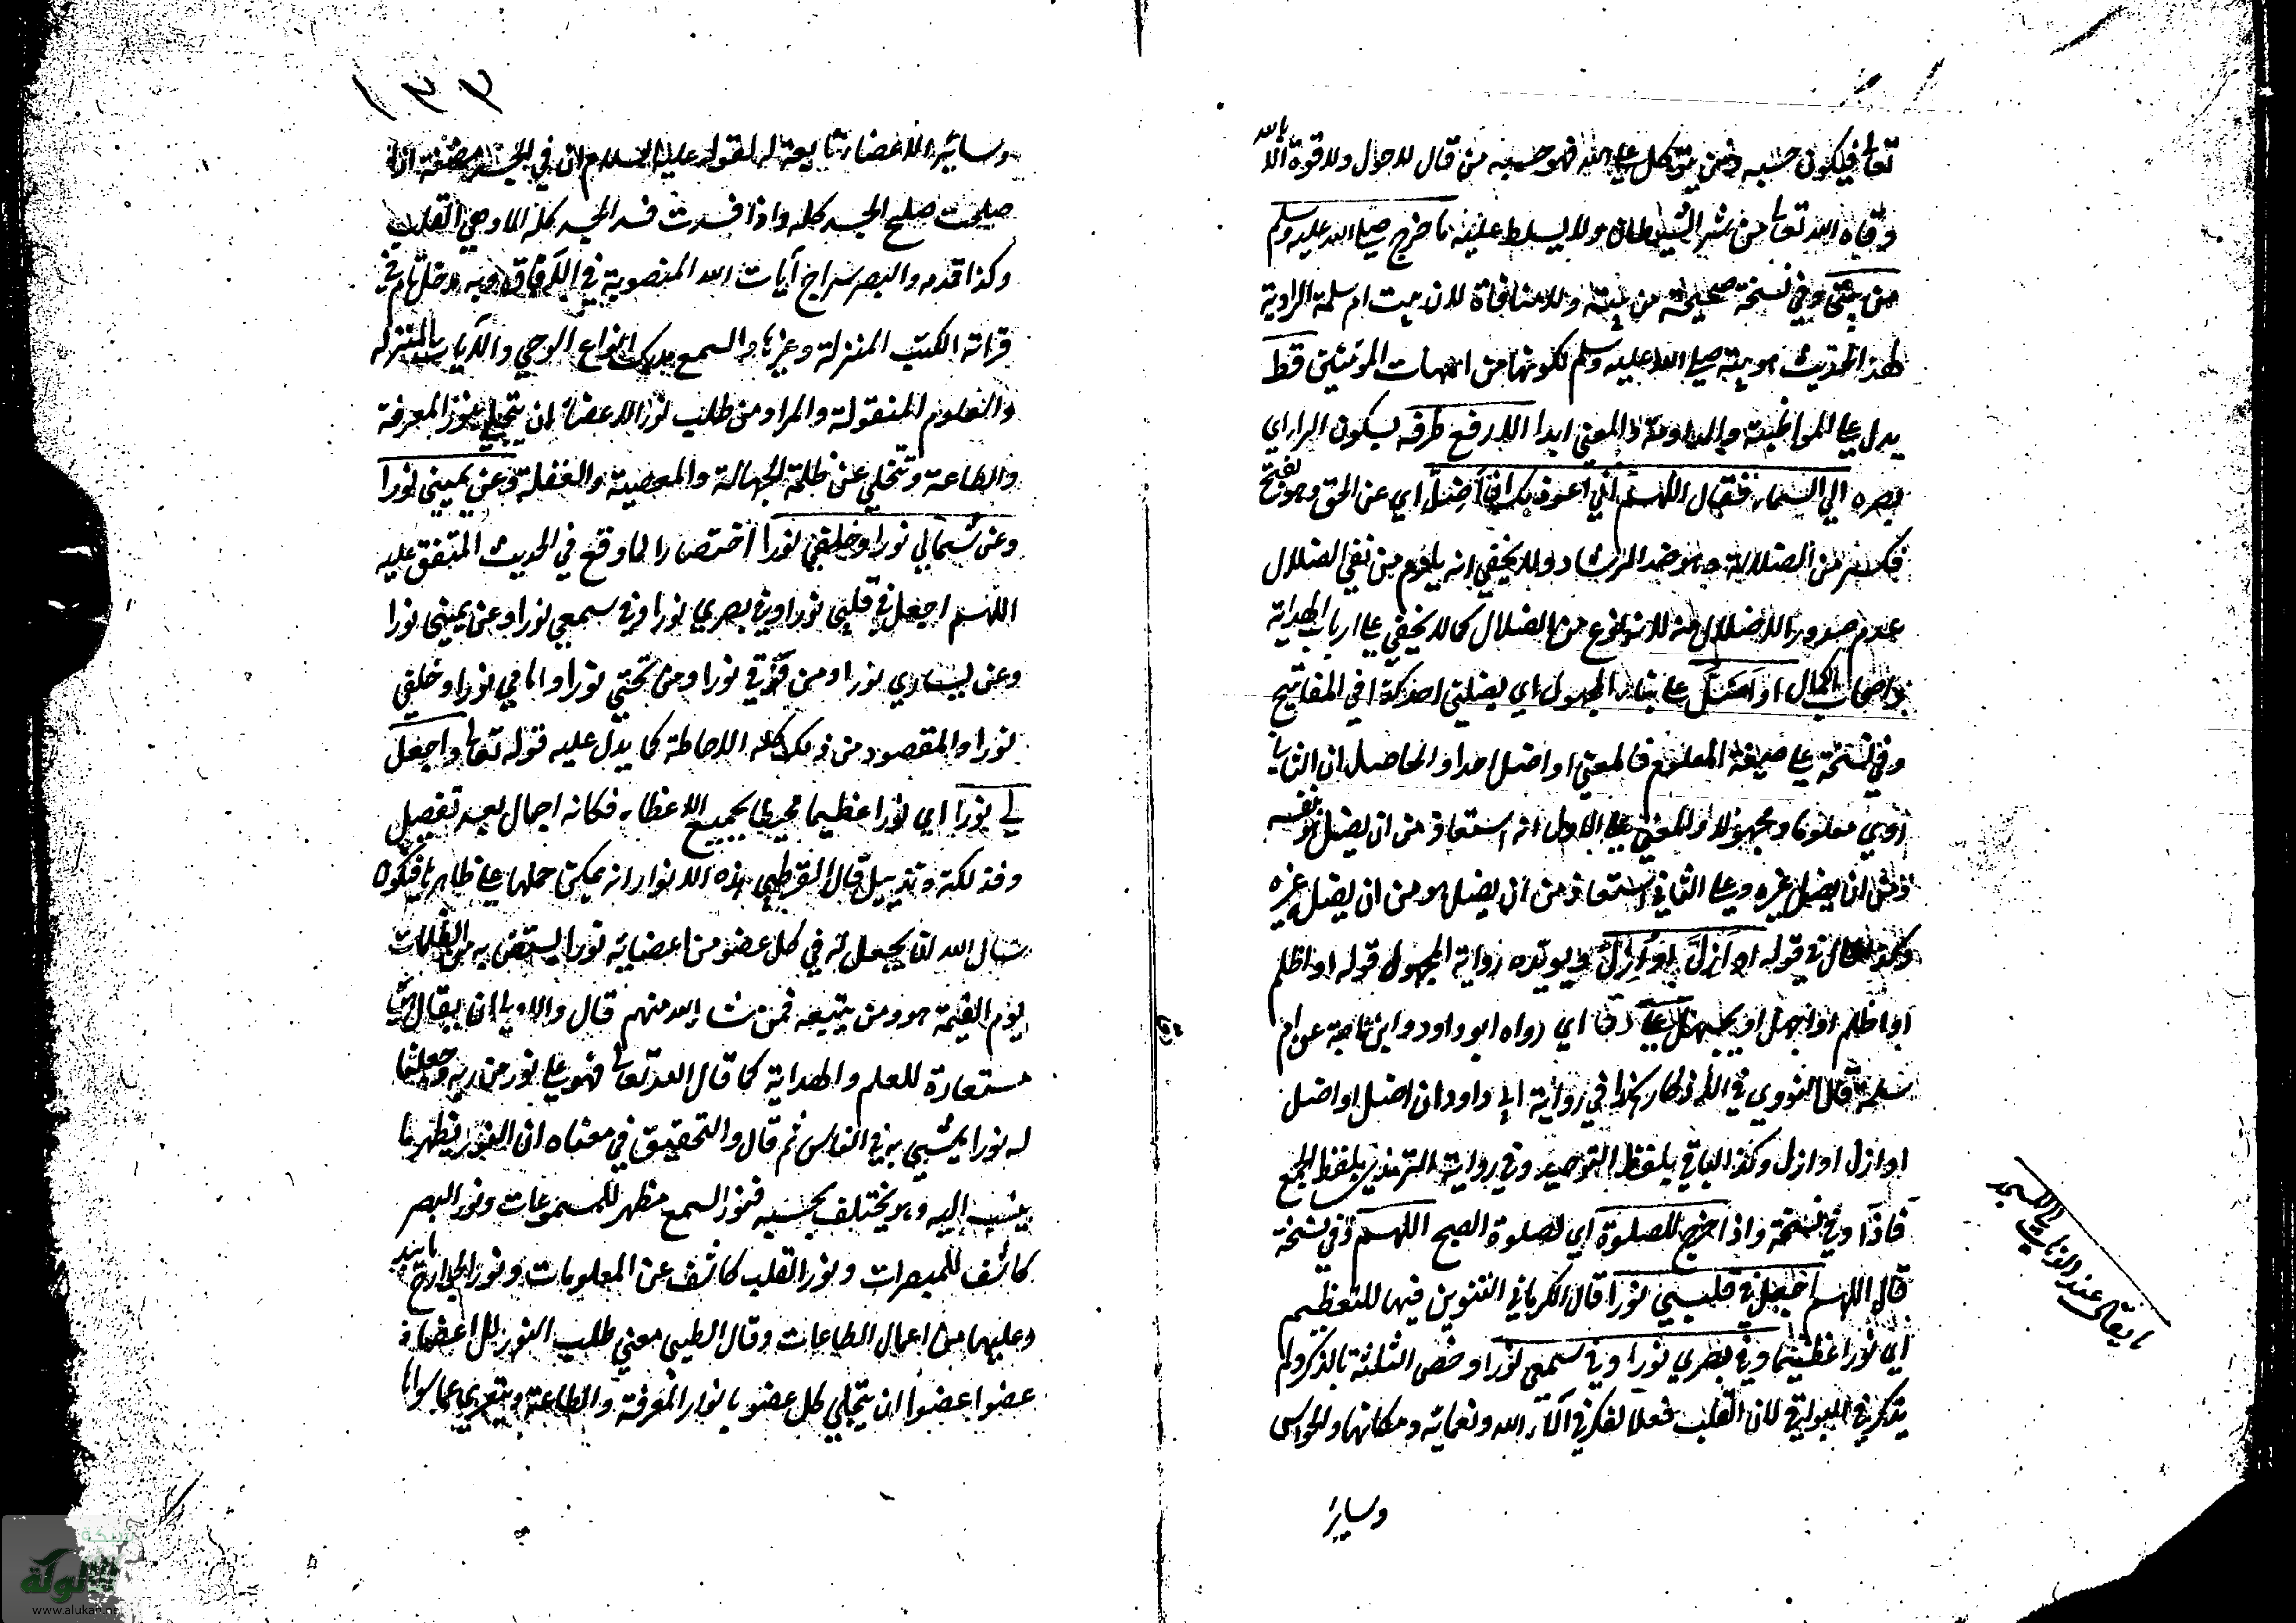 تعالى فيكون حسبه ومن يتوكل على الله فهو حسبه من قال لا حول ولا قوة الا بالله
وقاه الله تعالى من شر الشيطان ولا يسلط عليه ما خرج صلى الله عليه وسلم
من بيتي وفي نسخة صحيحة من بيته ولا منافاة لان بيت ام سلمة الراوية
لهذا الحديث هو بيته صلى الله عليه وسلم لكونها من امهات المؤمنين قط
يدل على المواظبة والمداومة والمعنى ابدا الا رفع طرفه بسكون الراء اي
بصره الى السماء فقال اللهم اني اعوذ بك ان اضل اي عن الحق وهو بفتح
فكسر من الضلالة وهو ضد الرشاد ولا يخفى انه يلزم من نفي الضلال
عدم صدور الاضلال منه لانه نوع من الضلال كما لا يخفى على ارباب الهداية
واصحاب الكمال او اضل على بناء المجهول اي يضلني احد كذا في المفاتيح
وفي نسخة على صيغة المعلوم فالمعنى او اضل احدا والحاصل ان الثاني
روي معلوما ومجهولا والمعنى على الاول انه استعاذ من ان يضل هو نفسه
ومن ان يضل غيره وعلى الثاني استعاذ من ان يضل هو من ان يضل غيره
وكذا الحال في قوله او ازل او ازل ويؤيده رواية المجهول قوله او اظلم
او اظلم او اجهل او يجهل علي دق اي رواه ابو داود وابن ماجة عن ام
سلمة قال النووي في الاذكار كذا في رواية ابي داود ان اضل او اضل
او ازل او ازل وكذا الباقي بلفظ التوحيد وفي رواية الترمذي بلفظ الجمع
فاذا وفي نسخة واذا خرج للصلوة اي لصلوة الصبح اللهم وفي نسخة
قال اللهم اجعل في قلبي نورا قال الكرماني التنوين فيها للتعظيم
اي نورا عظيما وفي بصري نورا وفي سمعي نورا وخص الثلثة بالذكر ولم
يذكر في البواقي لان القلب فعلا لفكر في آلاء الله ونعمائه ومكانها والحواس
وسائر
ما يقال عند الذهاب الى المسجد
١٧٧
وسائر الاعضاء تابعة له لقوله عليه السلام ان في الجسد مضغة اذا
صلحت صلح الجسد كله واذا فسدت فسد الجسد كله الا وهي القلب
وكذا قدمه والبصر سراج آيات الله المنصوبة في الآفاق وبه دخل تام في
قراءة الكتب المنزلة وغيرها والسمع مدرك انواع الوحي والآيات المنزلة
والعلوم المنقولة والمراد من طلب نور الاعضاء ان يتحلى بنور المعرفة
والطاعة وتتخلى عن ظلمة الجهالة والمعصية والغفلة وعن يميني نورا
وعن شمالي نورا وخلفي نورا اختصارا لما وقع في الحديث المتفق عليه
اللهم اجعل في قلبي نورا وفي بصري نورا وفي سمعي نورا وعن يميني نورا
وعن يساري نورا ومن فوقي نورا ومن تحتي نورا وامامي نورا وخلفي
نورا والمقصود من ذلك كله الاحاطة كما يدل عليه قوله تعالى واجعل
لي نورا اي نورا عظيما محيطا بجميع الاعظاء فكانه اجمال بعد تفصيل
وفذلكة وتذييل قال القرطبي هذه الانوار انه يمكن حملها على ظاهرها فيكون
سال الله ان يجعل له في كل عضو من اعضائه نورا يستضيء به من الظلمات
يوم القيمة هو ومن يتبعه فمن شاء الله منهم قال والاولى ان يقال هي
مستعارة للعلم والهداية كما قال الله تعالى فهو على نور من ربه وجعلنا
له نورا يمشي به في الناس ثم قال والتحقيق في معناه ان النور يظهر ما
ينسب اليه وهو يختلف بحسبه فنور السمع مظهر للمسموعات ونور البصر
كاشف للمبصرات ونور القلب كاشف عن المعلومات ونور الجوارح ما يبد
وعليها من اعمال الطاعات وقال الطيبي معنى طلب النور للاعضاء
عضوا عضوا ان يتجلى كل عضو بانوار المعرفة والطاعة ويتعرى عما سواها
الألوكة
www.alukah.net